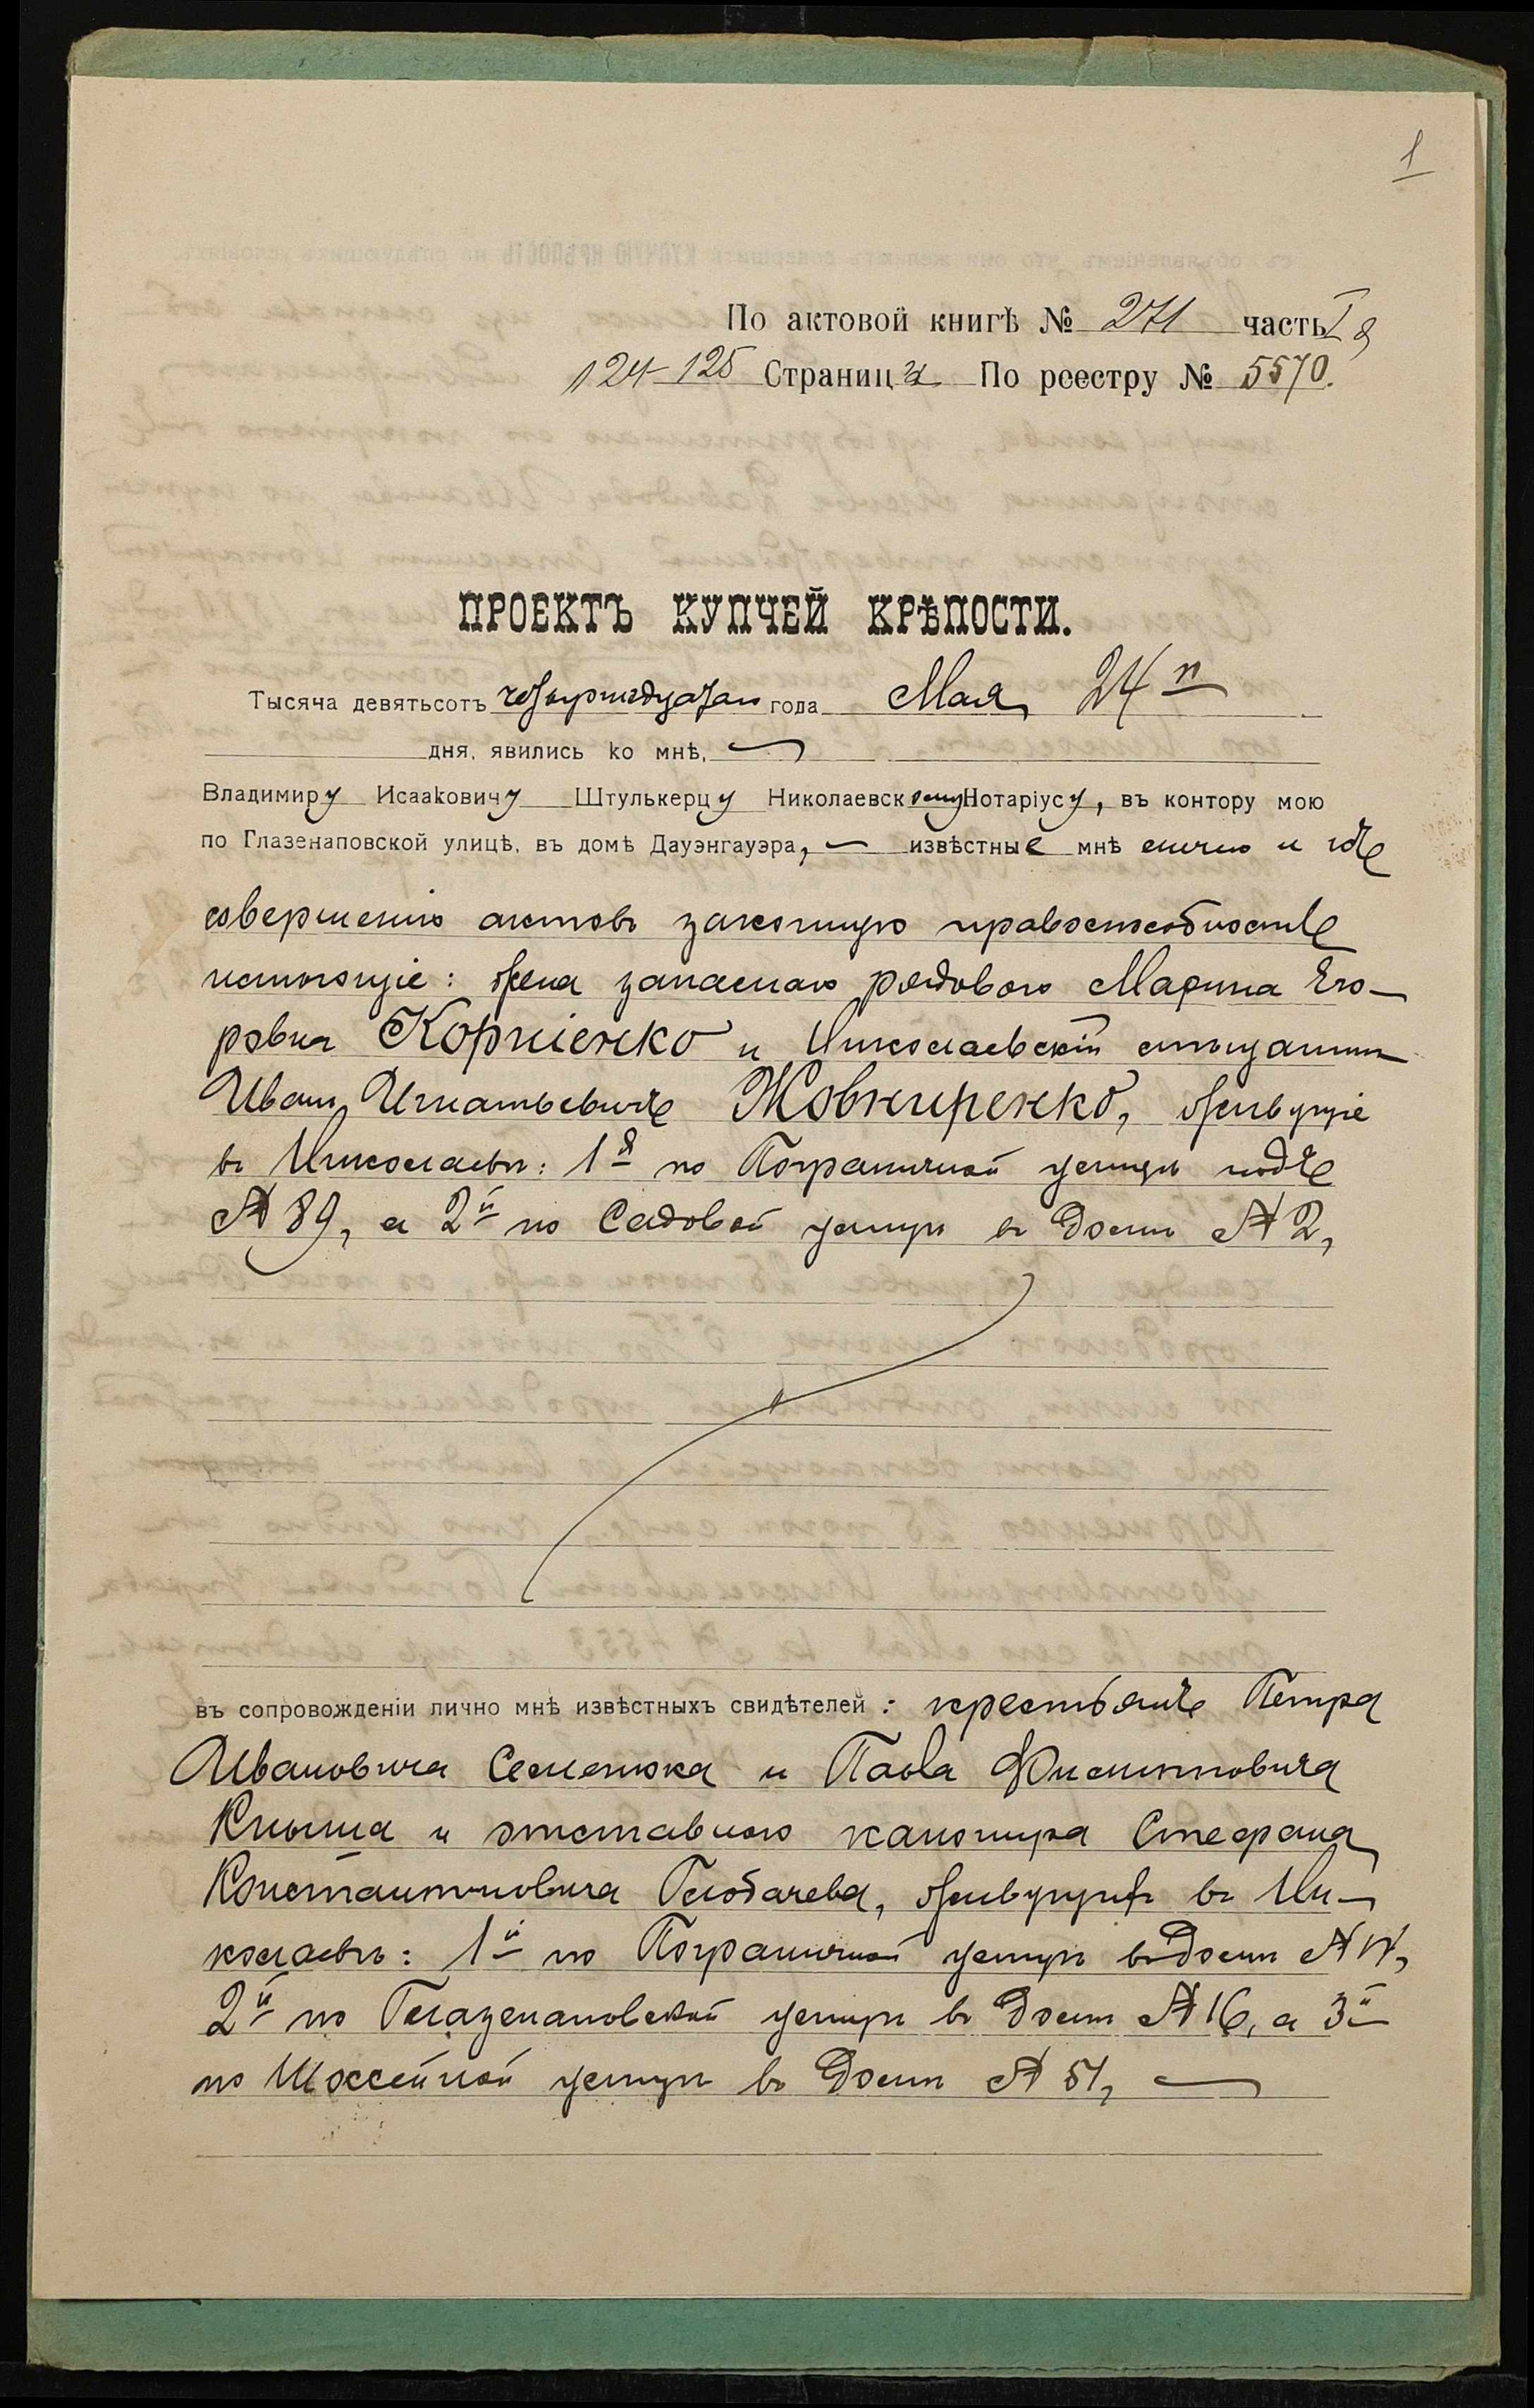 1
По актовой книгѣ № 271 часть I я
124-125 Страницы По реестру № 5570.
ПРОЕКТЪ КУПЧЕЙ КРѢПОСТИ.
Тысяча девятьсотъ четырнадцатаго года Мая 24 го
дня, явились ко мнѣ,
Владимиру Исааковичу Штулькерцу Николаевскому Нотаріусу, въ контору мою
по Глазенаповской улицѣ, въ домѣ Дауэнгауэра, извѣстные мнѣ лично и къ
совершенію актовъ законную правоспособность
имѣющіе: жена запаснаго рядового Марина Его-
ровна Корніенко и Николаевскій мѣщанинъ
Иванъ Игнатьевичъ Жовниренко, живущіе
въ Николаевѣ: 1я по Пограничной улицѣ подъ
№ 89, а 2й по Садовой улицѣ въ домѣ № 2,
въ сопровожденіи лично мнѣ извѣстныхъ свидѣтелей: крестьянъ Петра
Ивановича Семенюка и Павла Филипповича
Кныша и отставного канонира Стефана
Константиновича Глобачева, живущихъ въ Ни-
колаевѣ: 1й по Пограничной улицѣ въ домѣ №
2й по Глазенаповской улицѣ въ домѣ № 16, а 3й
по Шоссейной улицѣ въ домѣ № 51,